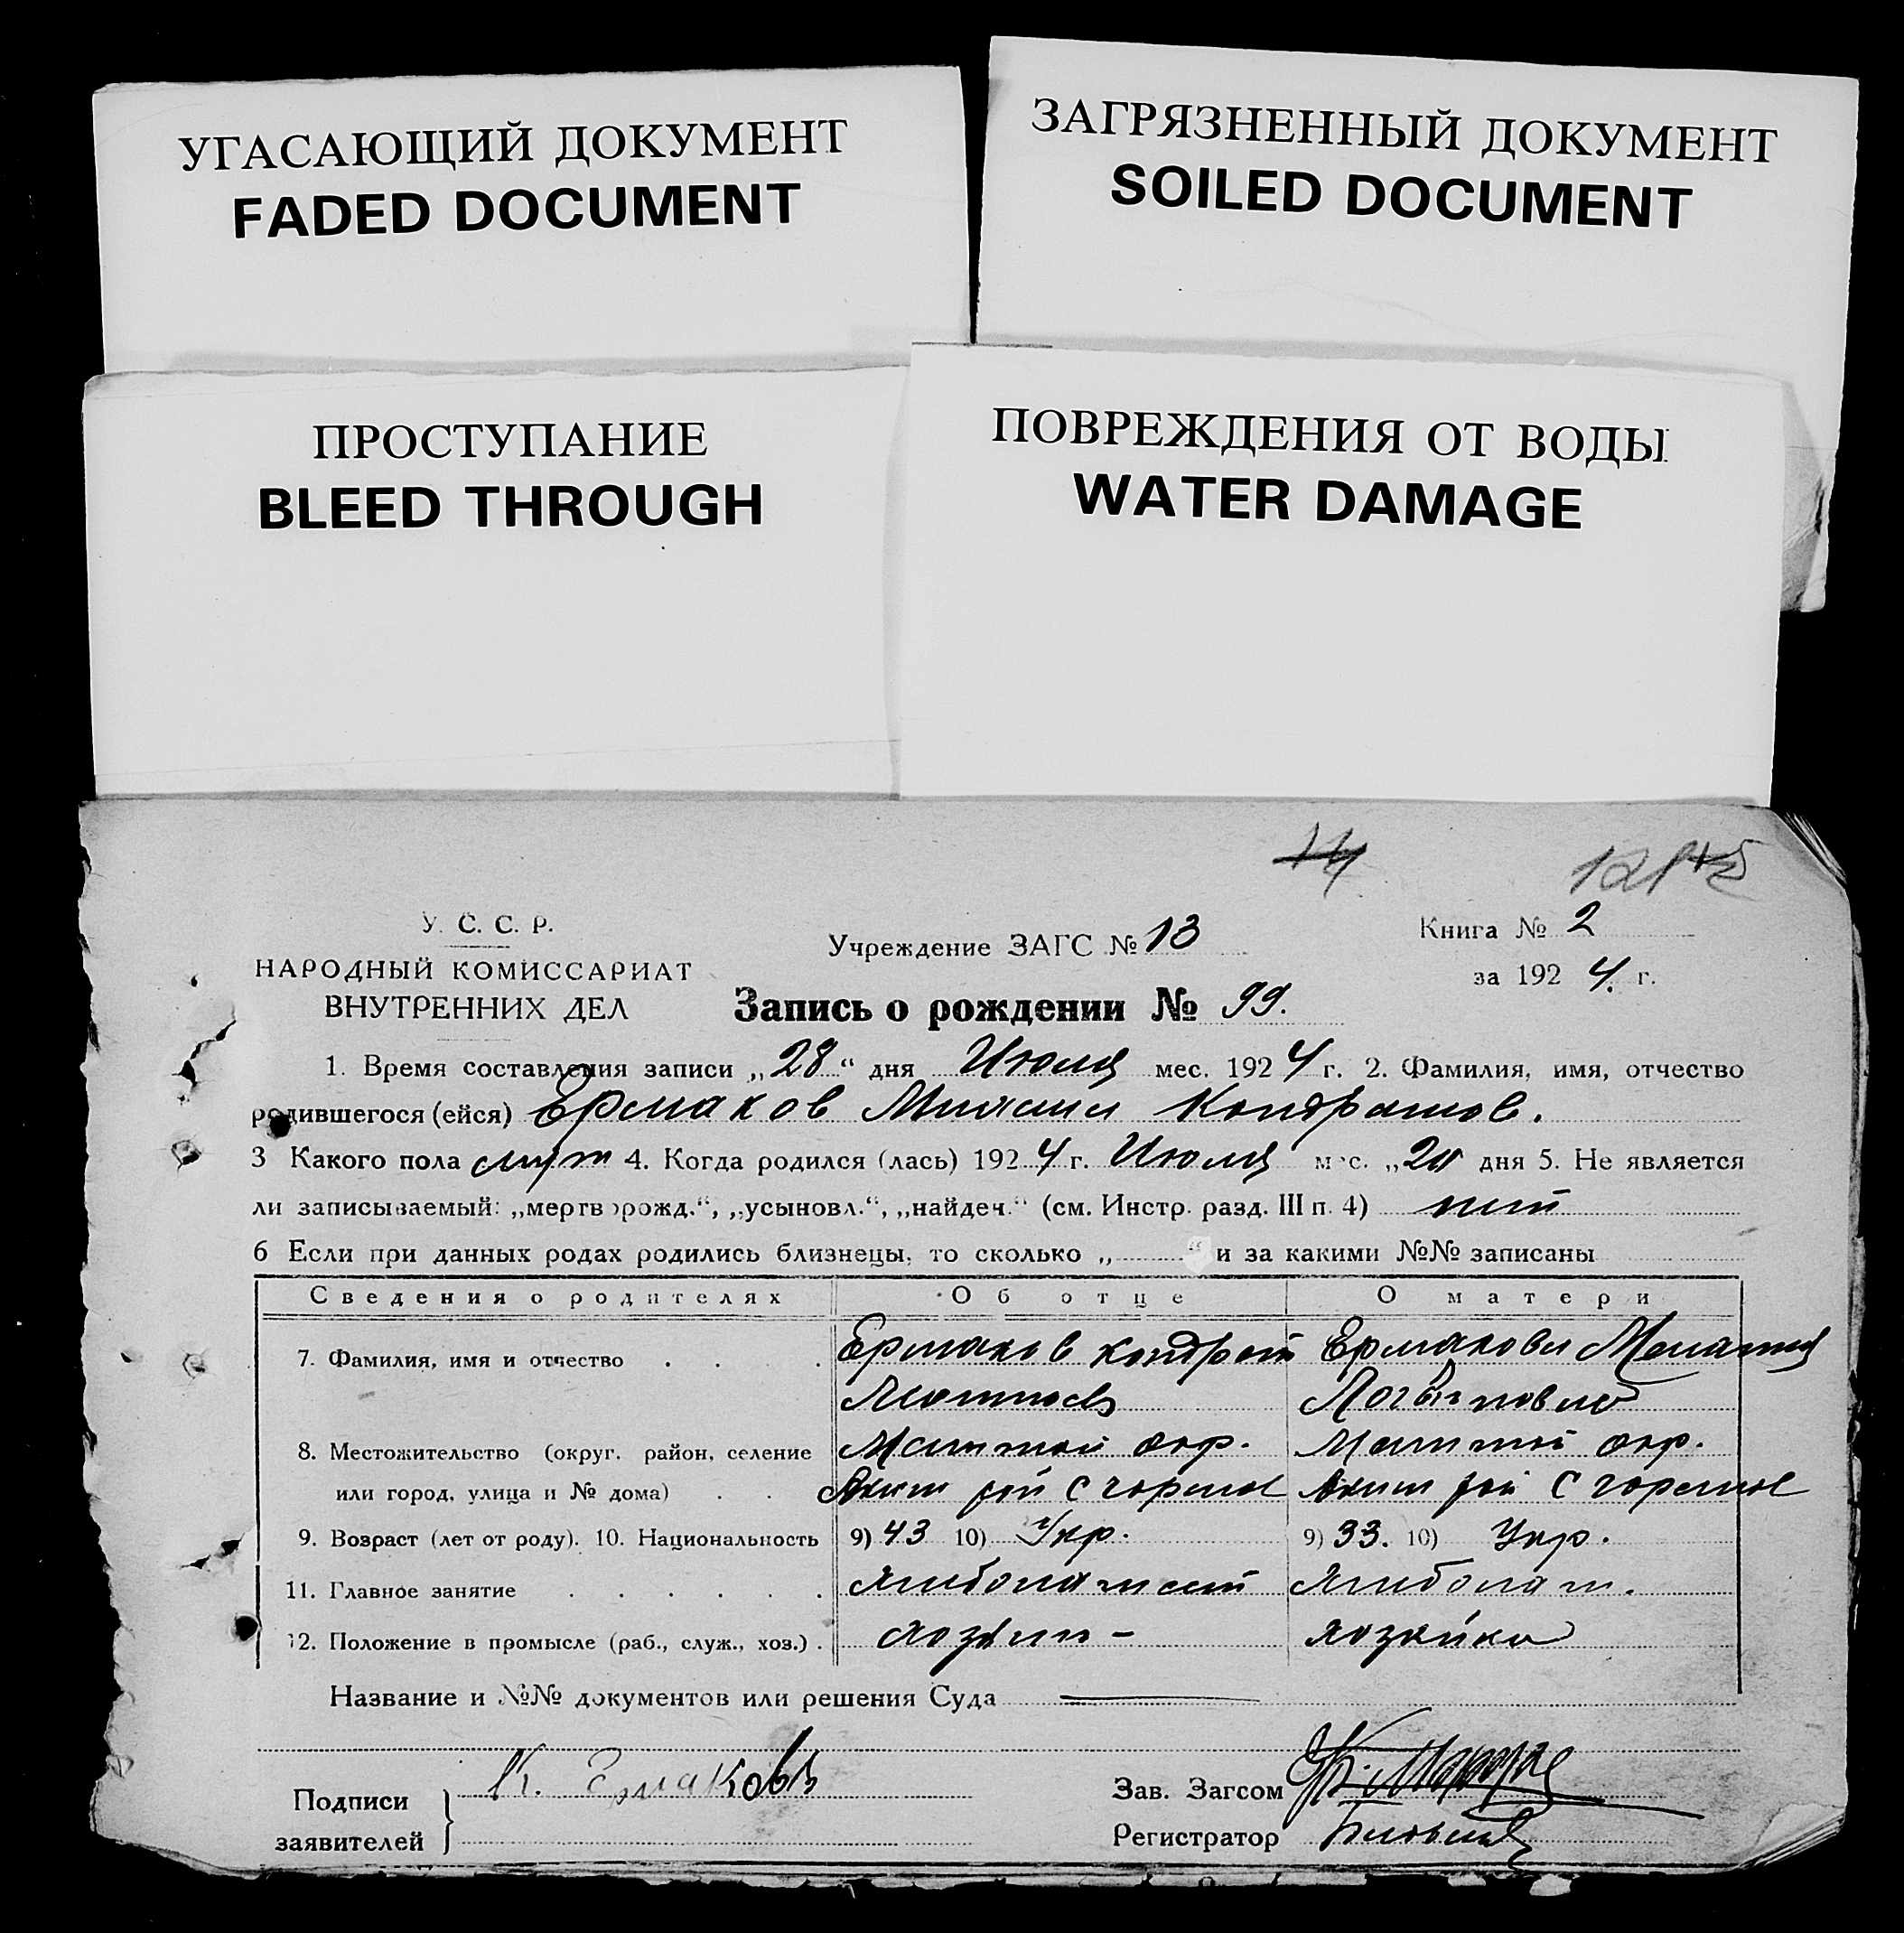 УГАСАЮЩИЙ ДОКУМЕНТ
FADED DOCUMENT
ЗАГРЯЗНЕННЫЙ ДОКУМЕНТ
SOILED DOCUMENT
ПРОСТУПАНИЕ
BLEED THROUGH
ПОВРЕЖДЕНИЯ ОТ ВОДЫ
WATER DAMAGE
14
У. С. С. Р.
НАРОДНЫЙ КОМИССАРИАТ
ВНУТРЕННИХ ДЕЛ
Учреждение ЗАГС № 13
Книга № 2
за 1924 г.
Запись о рождении № 99.
1. Время составления записи „28“ дня Июля мес. 1924 г. 2. Фамилия, имя, отчество
родившегося (ейся) Ермаков Михаил Кондратов.
3 Какого пола муж 4. Когда родился (лась) 1924 г. Июля мес. „ дня 5. Не является
ли записываемый: „мертворожд.“, „усыновл.“, „найдеч.“ (см. Инстр. разд. III п. 4) нет
6 Если при данных родах родились близнецы, то сколько „ “ и за какими №№ записаны
Сведения о родителях Об отце О матери
7. Фамилия, имя и отчество Ермаков Кондрат Ермакова Мелания
Логвиновна
8. Местожительство (округ. район, селение окр. окр.
или город, улица и № дома) Аким рай С Аким рай С
9. Возраст (лет от роду). 10. Национальность 9) 43 10) Укр. 9) 33. 10) Укр.
11. Главное занятие хлебопашест хлебопаш.
12. Положение в промысле (раб., служ., хоз.) хозяин - хозяйка
Название и №№ документов или решения Суда
Подписи заявителей К. Ермаковъ
Зав. Загсом
Регистратор